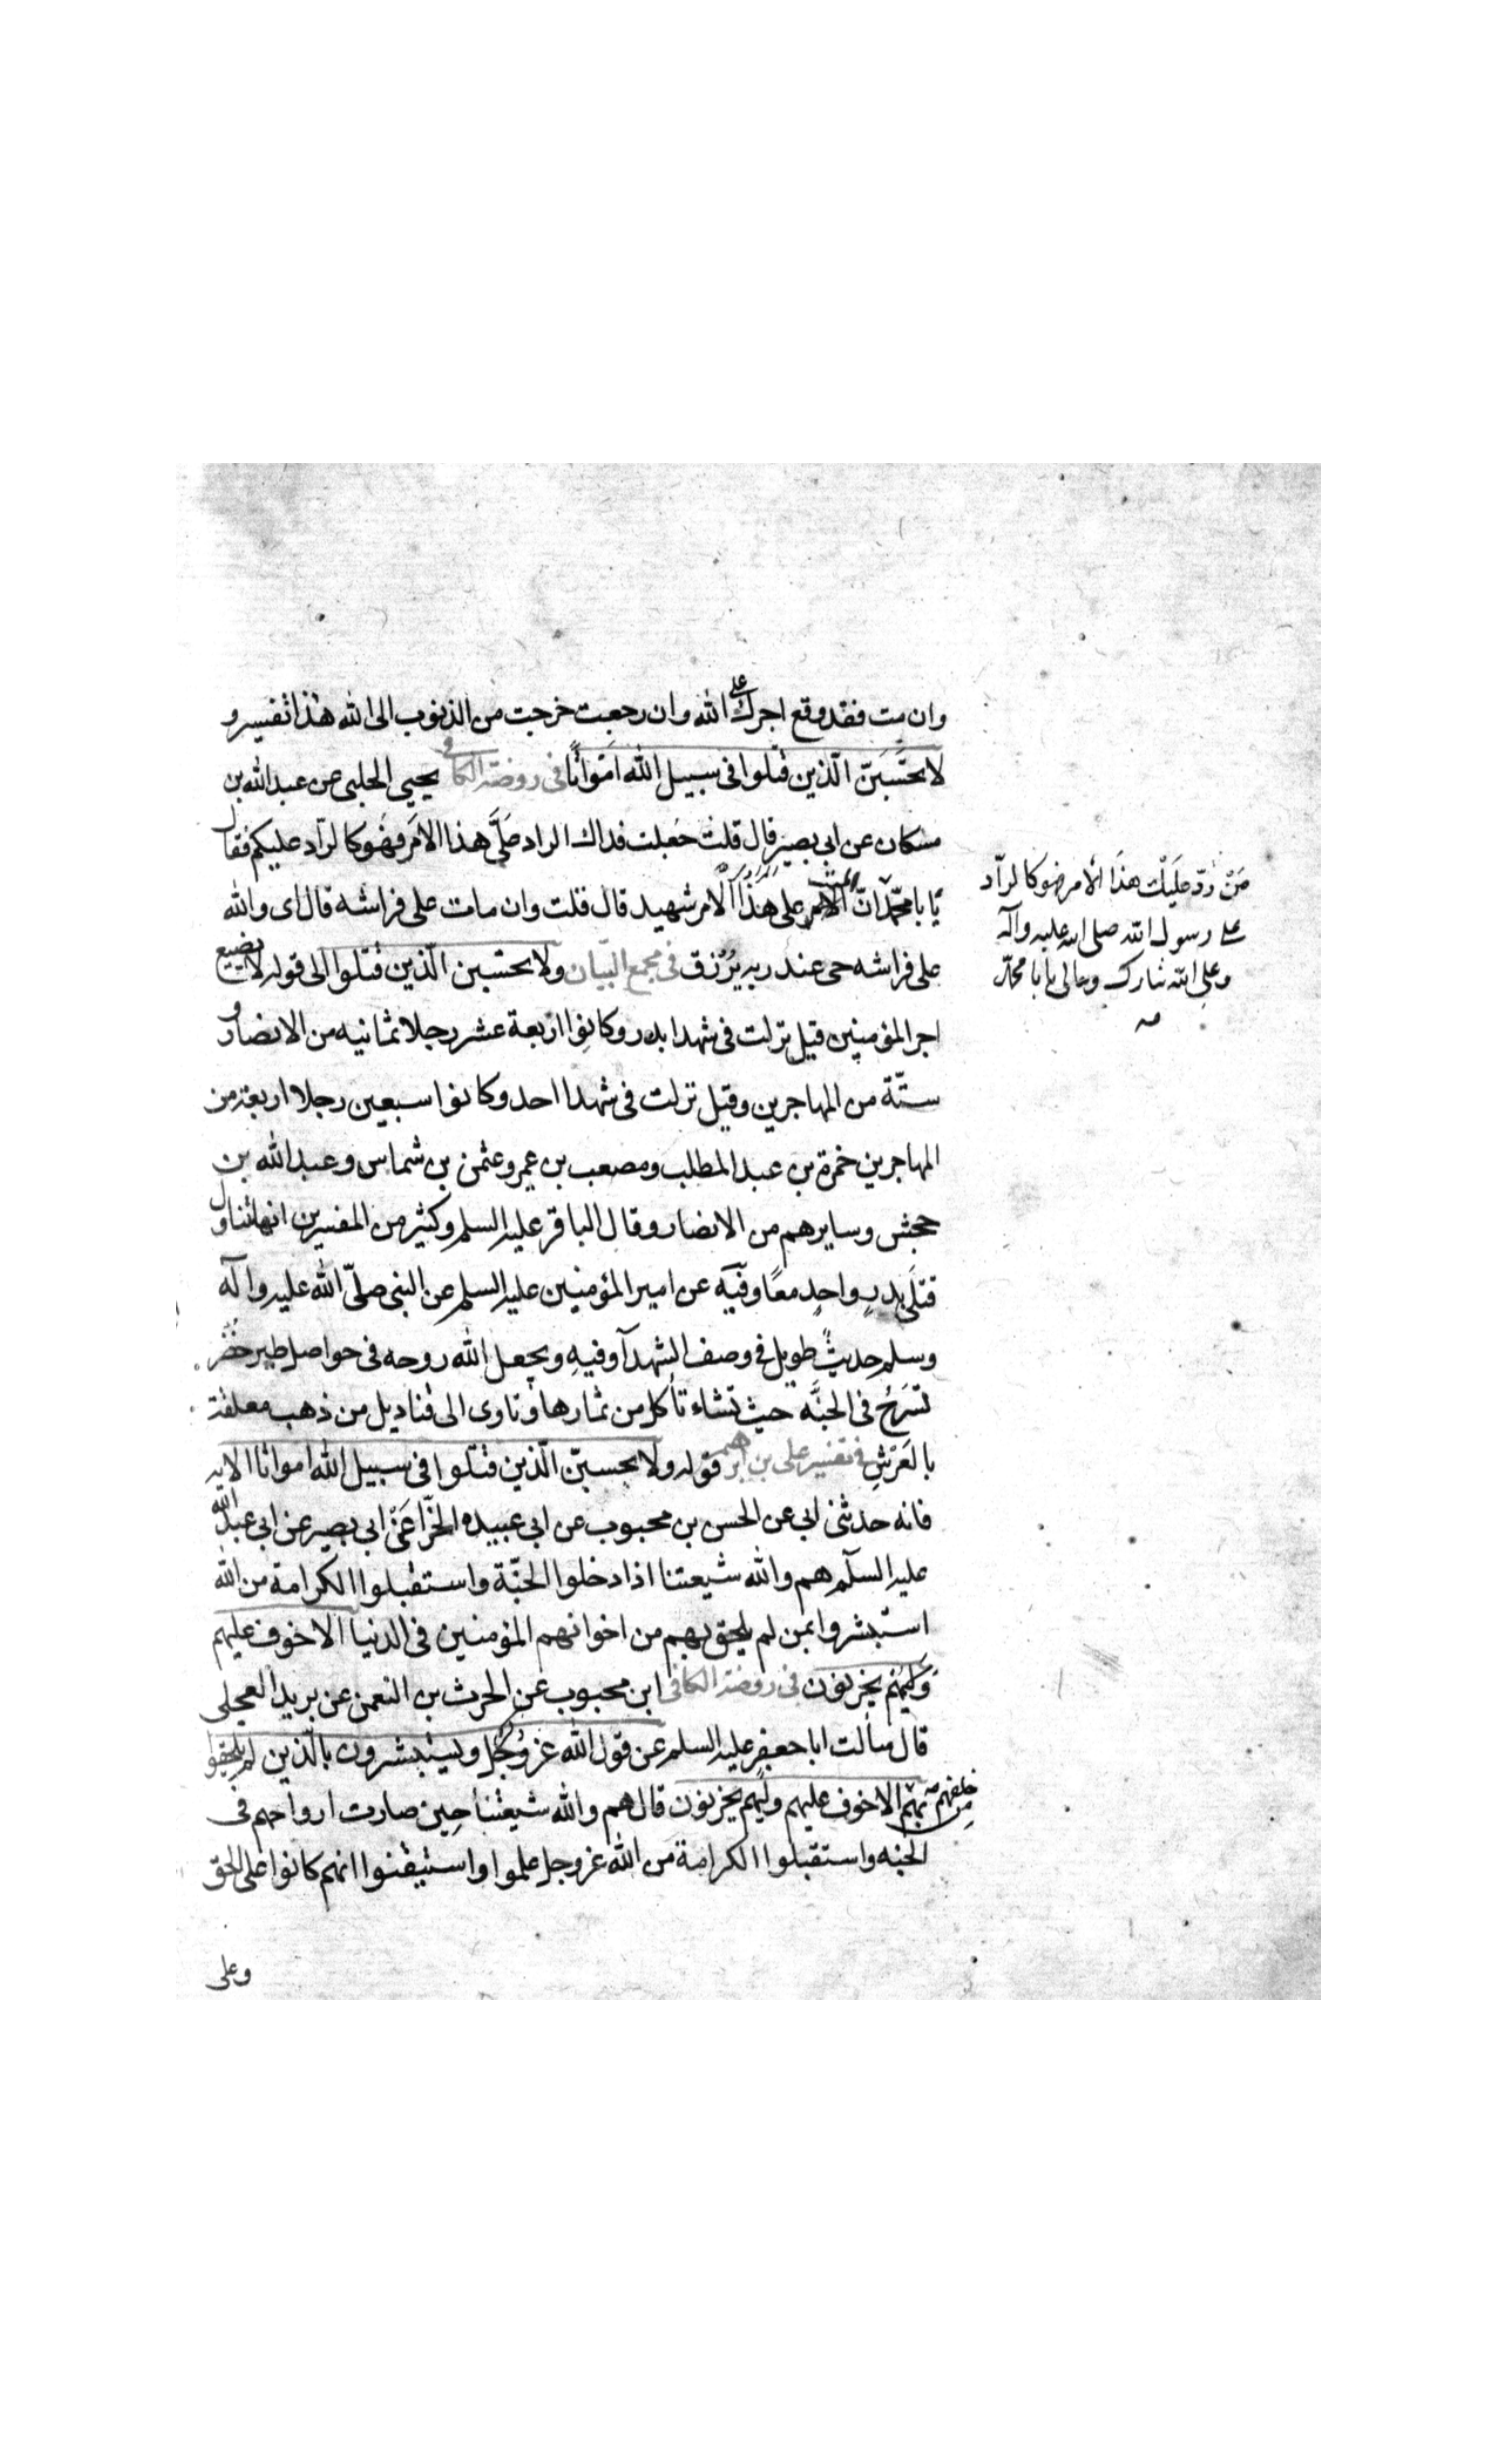 وان مت فقد وقع اجرك على الله وان رجعت خرجت من الذنوب الى الله هذا تفسير و
لا تحسَبَنّ الّذين قتلوا فى سبيل الله امَواتًا فى روضة الكافى يحيى الحلبى عن عبد الله بن
مسكان عن ابى بصير قال قلت جعلت فداك الراد علَىَّ هذا الامَر فهَو كالرّاد عليكم فقال
يَا با محمّد انّ الميّت على هَذَا الامر شهيد قال قلت وان مات على فراشه قال اى والله
على فراشه حى عند ربه يُرْزق فى مجمع البيان ولا تحسبن الّذين قتلوا الى قوله لا يضيع
اجر المؤمنين قيل نزلت فى شهدا بدر وكانوا اربعة عشر رجلا ثمانيه من الانصار و
ستّة من المهاجرين وقيل نزلت فى شهدا احد وكانوا سبعين رجلا اربعة من
المهاجرين حمزة بن عبد المطلب ومصعب بن عمير وعثمن بن شماس وعبد الله بن
جحش وسايرهم من الانصار وقال الباقر عليه السلم وكثير من المفسرين انها تتناول
قتلَى بدرٍ واحدٍ معًا وفيه عن امير المؤمنين عليه السلم عن النبى صلّى الله عليه واله
وسلم حديثٌ طويل فى وصف الشهدآ وفيهِ ويجعل الله روحه فى حواصل طير خُضُر
تَسَرحُ فى الجنَّة حيث تشاء تأكل من ثمارها وتاوى الى قناديل من ذهب معلقة
بالعَرْشِ فى تفسير على بن ابرهيم قوله ولا تحسبنّ الّذين قتلوا فى سبيل الله امواتا الايه
فانه حدثنى ابى عن الحسن بن محبوب عن ابى عبيده الحذّا عَنْ ابى بصير عن ابى عبد الله
عليه السلم هم والله شيعتنا اذا دخلوا الجنّة واستقبلوا الكرامة من الله
استبشروا بمن لم يلحق بهم من اخوانهم المؤمنين فى الدنيا الا خوف عليهم
وَلاهُم يحزنون فى روضة الكافى ابن محبوب عن الحرث بن النعمن عن بريد العجلى
قال سألت ابا جعفر عليه السلم عن قول الله عزوجل ويستبشرون بالّذين لم يلحقوا
بهم من خلفهم الا خوف عليهم ولاهم يحزنون قال هم والله شيعتنا حين صارت ارواحهم فى
الجنه واستقبلوا الكرامة من الله عزوجل علموا واستيقنوا انهم كانوا على الحق
وعلى
مَنْ رَدّ عَلَيْك هذَا الأمر فهو كالرآد
على رسول الله صلى الله عليه وآله
وعلى الله تبارك وتعالى يا با محمّد